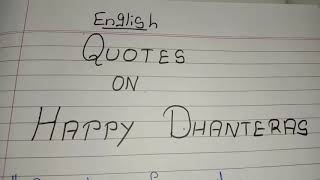 English
QUOTES
ON
HAPPY DHANTERAS